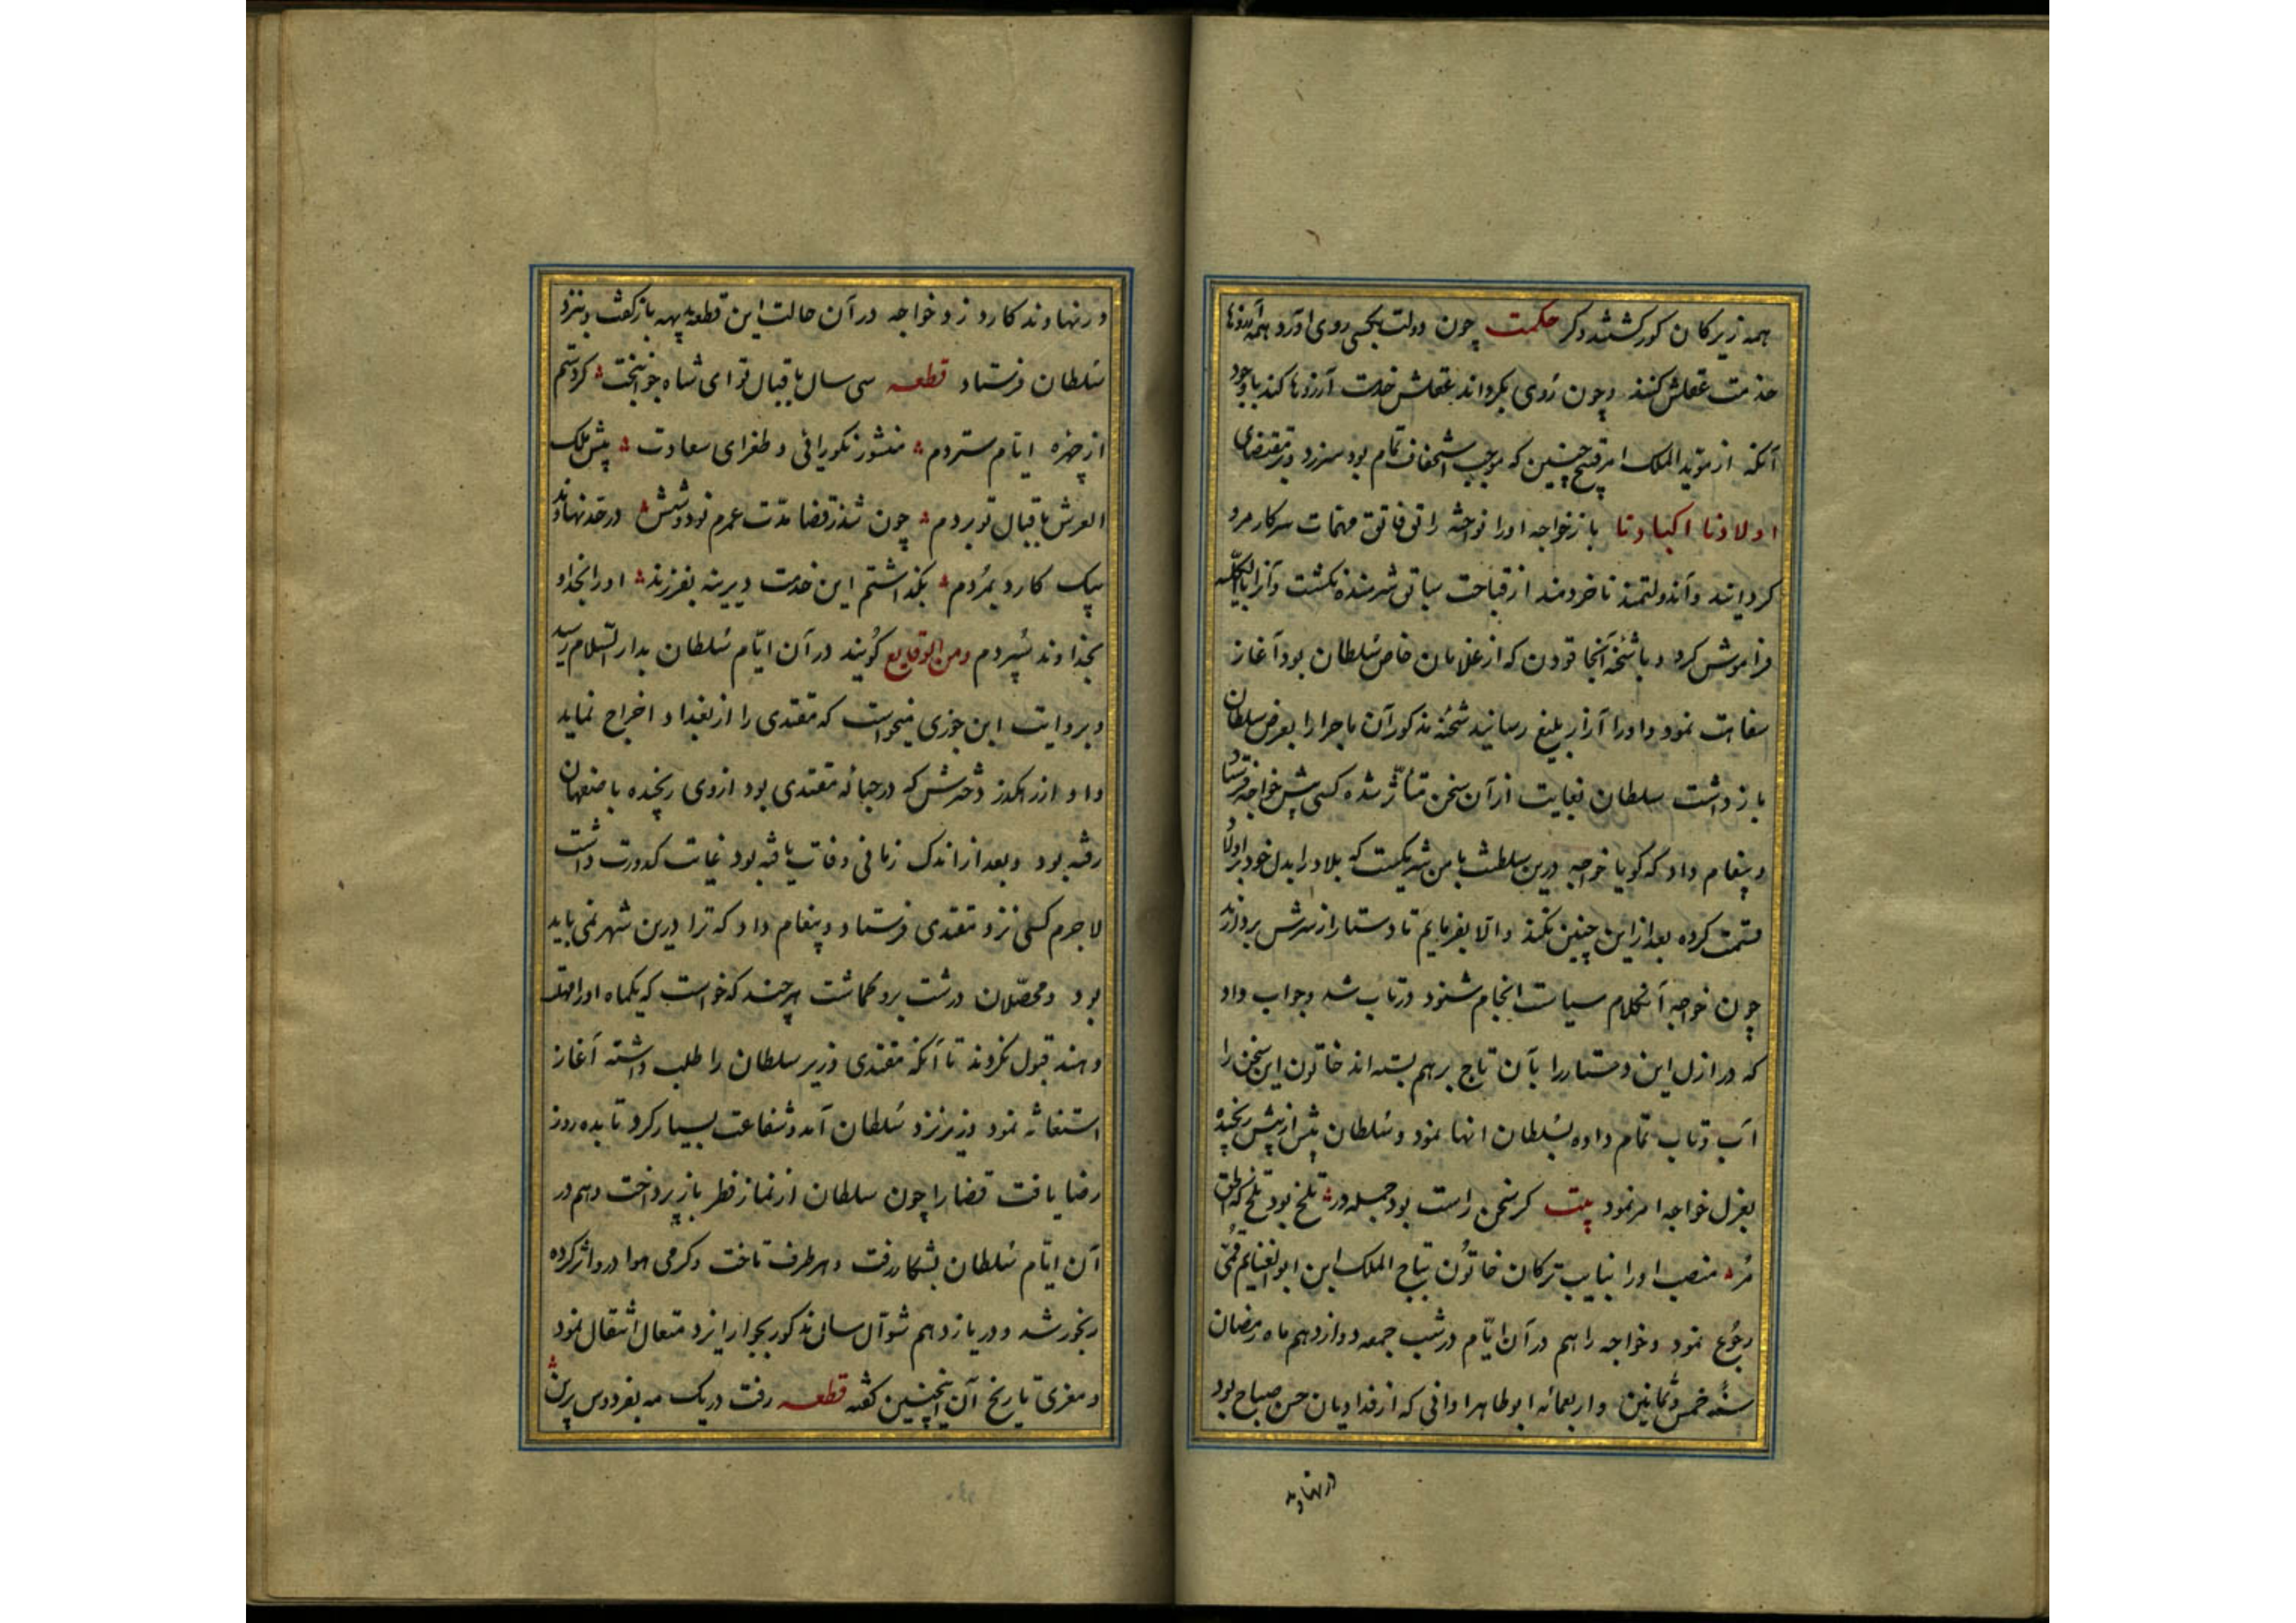 همه زیرکان کور گشتند و کر حکمت چون دولت بکسی روی آورد همه آرزوها
خدمت عقلش کنند و چون روی بگرداند عقلش خدمت آرزوها کند با وجود
آنکه از مؤید الملک امر قبیح چنین که موجب استخفاف تمام بود سر زد و بر مقتضای
اولادنا اکبادنا باز خواجه او را نواخته راتق و فاتق مهمات سرکار مرو
گردانید و آن دولتمند ناخردمند از قباحت سباق شرمنده نگشت و آنرا بالکلیه
فراموش کرد و با شحنه آنجا قودن که از غلامان خاص سلطان بود آغاز
سفاهت نمود و او را آزار بلیغ رسانید شحنه مذکور آن ماجرا را بعرض سلطان
باز داشت سلطان بغایت از آن سخن متأثر شده کسی پیش خواجه فرستاد
و پیغام داد که گویا خواجه درین سلطنت با من شریکست که بلاد را بدل خود بر اولاد
قسمت کرده بعد از این چنین نکند و الا بفرمایم تا دستار از سرش بردارند
چون خواجه آنکلام سیاست انجام شنود در تاب شد و جواب داد
که در ازل این دستار را بآن تاج بر هم بسته اند خاتون این سخن را
آب و تاب تمام داده بسلطان انها نمود و سلطان بیش از پیش رنجیده
بعزل خواجه امر نمود بیت گر سخن راست بود جمله در تلخ بود تلخ که الحق
مر منصب او را بنایب ترکان خاتون بتاج الملک ابن ابو الغنایم قمی
رجوع نمود و خواجه را هم در آن ایام در شب جمعه دوازدهم ماه رمضان
سنه خمس و ثمانین و اربعمائه ابو طاهر اوانی که از فداویان حسن صباح بود
در نهاوند
در نهاوند کارد زد و خواجه در آن حالت این قطعه بدیهه باز گفت و بنزد
سلطان فرستاد قطعه سی سال باقبال تو ای شاه جوانبخت گرد ستم
از چهره ایام ستردم منشور نکورائی و طغرای سعادت پیش ملک
العرش باقبال تو بردم چون شد ز قضا مدت عمرم نود و شش در حد نهاوند
بیک کارد بمردم بگذاشتم این خدمت دیرینه بفرزند او را بخدا و
بخداوند سپردم و من الوقایع گویند در آن ایام سلطان بدار السلام رسید
و بروایت ابن جوزی میخواست که مقتدی را از بغداد اخراج نماید
و او از رهگذر دخترش که در حباله مقتدی بود از وی رنجیده باصفهان
رفته بود و بعد از اندک زمانی وفات یافته بود غایت کدورت داشت
لاجرم کسی نزد مقتدی فرستاد و پیغام داد که ترا درین شهر نمی باید
بود و محصلان درشت برو گماشت هر چند که خواست که یکماه او را مهلت
دهند قبول نکردند تا آنکه مقتدی وزیر سلطان را طلب داشته آغاز
استغاثه نمود وزیر نزد سلطان آمد و شفاعت بسیار کرد تا بده روز
رضا یافت قضا را چون سلطان از نماز فطر باز پرداخت و هم در
آن ایام سلطان بشکار رفت و هر طرف تاخت و گرمی هوا درو اثر کرده
رنجور شد و در یازدهم شوال سال مذکور بجوار ایزد متعال انتقال نمود
و معزی تاریخ آن اینچنین گفته قطعه رفت در یک مه بفردوس برین